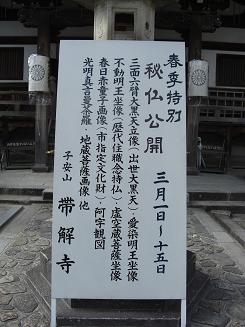 春季特別
秘仏公開
三月一日～十五日
三面六臂大黒天立像(出世大黒天)・愛染明王坐像
不動明王坐像(歴代住職念持仏)・虚空蔵菩薩坐像
春日赤童子画像(市指定文化財)・阿字観図
光明真言曼荼羅 地蔵菩薩画像 他
子安山
帯解寺